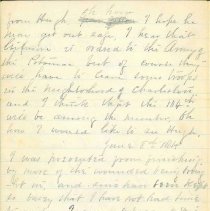 from Hugh oh how I hope he
may get out safe, I hear that
is ordered to the Army of
the Potomac but of course they
will have to leave some troops
in the neighborhood of Charleston,
and I think that the 144th
will be among the number, oh
how I would like to see Hugh,
June 8th 1864
I was prevented from finishing
by more of the wounded being brought
in, and since have been kept
so busy that I have not had time